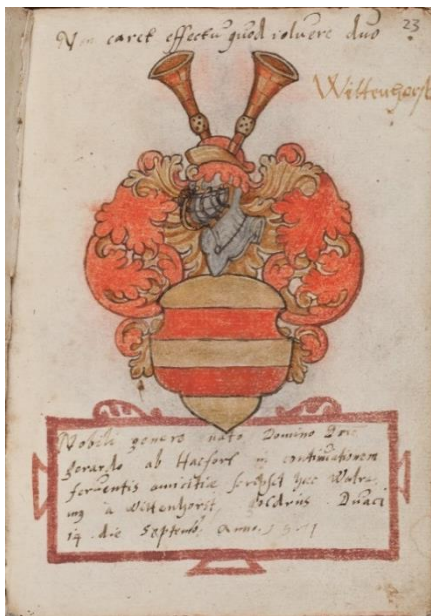 Non caret effectu quod voluere duo
23
Wittenhorst
Nobili genere nato Domino Don
gerardo ab Hacfort in continuationem
ferventis amicitie scripsit hec Walra
a Wittenhorst, Geldrus Duaci
14 die Septemb. Anno